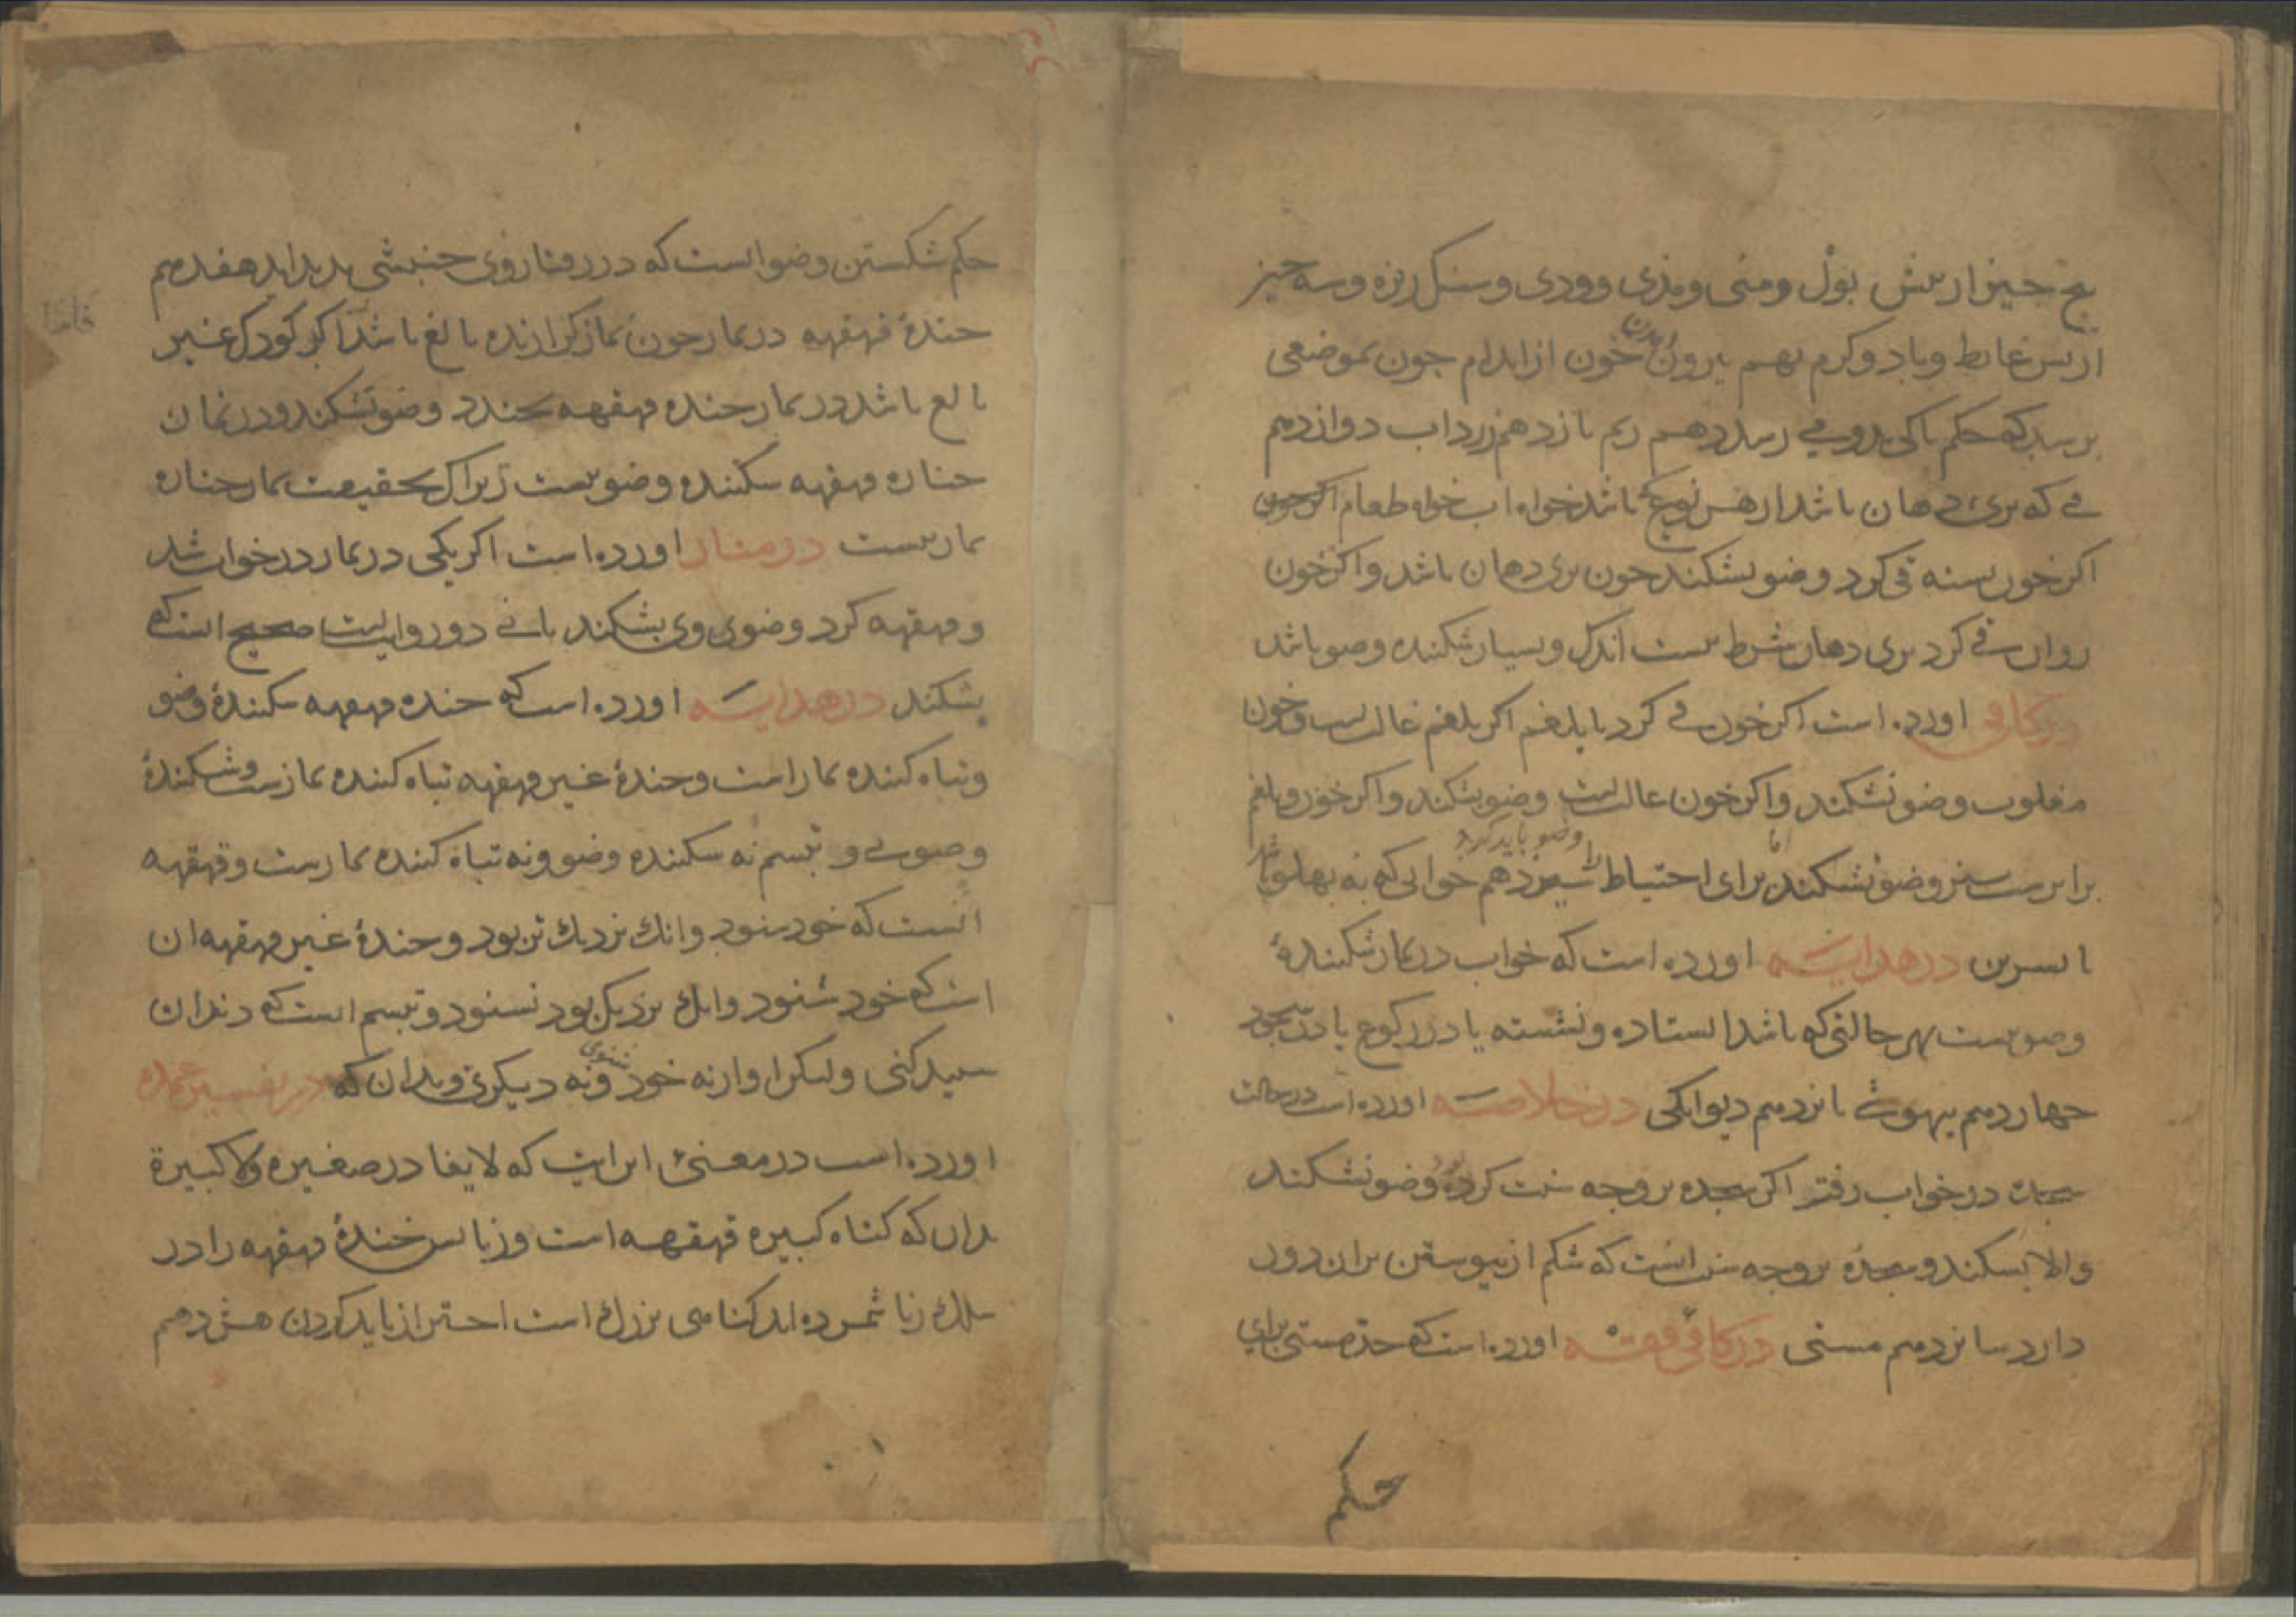 پنج چیز از پیش بول و منی و مذی و ودی و سنک ریزه و سه چیز
از پس غایط و باد و کرم نهم بیرون آمدن خون از اندام چون بموضعی
برسد که حکم پاکی بدو می رسد دهم ریم یازدهم زرداب دوازدهم
قی که پری دهان باشد از هر نوع که باشد خواه اب خواه طعام
اکر خون بسته قی کرد وضو بشکند چون پری دهان باشد و اکر خون
روان قی کرد پری دهان شرط نیست اندک و بسیار شکننده وضو باشد
در کافی اورده است اکر خون قی کرد با بلغم اکر بلغم غالب است و خون
مغلوب وضو نشکند و اکر خون غالب است وضو بشکند و اکر خون و بلغم
وضو باید کرد
برابرست نیز وضو نشکند اما برای احتیاط را سیزدهم خوابی که به پهلو باشد
یا سرین در هدایه اورده است که خواب در نماز شکنندهٔ
وضو نیست بهر حالتی که باشد ایستاده و نشسته یا در رکوع یا در سجود
چهاردهم بیهوشی پانزدهم دیوانکی در خلاصه اورده است در حالت
سجده در خواب رفتن اکر سجده بر وجه سنت کرده وضو نشکند
والا بشکند و سجده بر وجه سنت انست که شکم از پیوستن بران دور
دارد شانزدهم مستی در کافی فقه اورده است که حد مستی برای
حکم
حکم شکستن وضو انست که در رفتار وی جنبشی پدید اید هفدهم
خندهٔ قهقهه در نماز چون نماز کزارنده بالغ باشد اکر کودک غیر
بالغ باشد در نماز خنده قهقهه بخندد وضو نشکند و در نماز
جنازه قهقهه شکننده وضو نیست زیراک بحقیقت نماز جنازه
نماز نیست در منار اورده است اکر یکی در نماز در خواب شد
و قهقهه کرد وضوی وی بشکند یا نی دو روایت است صحیح انست که
بشکند در هدایه اورده است که خنده قهقهه شکنندهٔ وضو
و تباه کننده نماز است و خندهٔ غیر قهقهه تباه کننده نمازست و شکنندهٔ
وضو نی و تبسم نه شکننده وضو و نه تباه کننده نمازست و قهقهه
انست که خود شنود و انک نزدیک تر بود و خندهٔ غیر قهقهه ان
است که خود شنود و انک نزدیک بود نشنود و تبسم انست که دندان
سپید کنی ولیکن اواز نه خود شنوی و نه دیکری و بدان که در تفسیر عمده
اورده است در معنی این ایت که لا یغادر صغیرة ولا کبیرة
بدان که کناه کبیره قهقهه است و زنا پس خندهٔ قهقهه را در
سلک زنا شمرده اند کناهی بزرک است احتراز باید کردن هشدهم